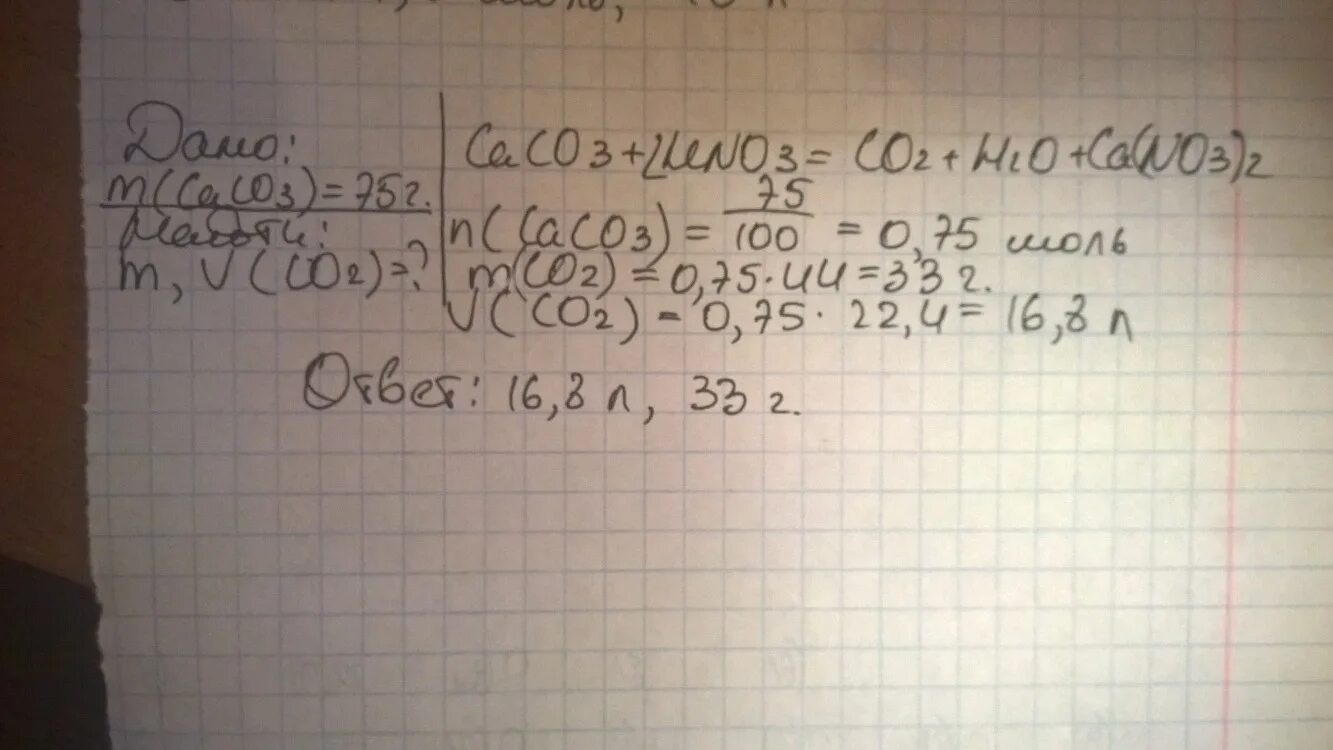 Дано:
m(CaCO3)=75г.
Найти:
m, V(CO2)=?
CaCO3+2HNO3= CO2+H2O+Ca(NO3)2
n(CaCO3)= 75/100 = 0,75 моль
m(CO2)=0,75·44=33г.
V(CO2)=0,75· 22,4= 16,8 л
Ответ: 16,8 л, 33 г.